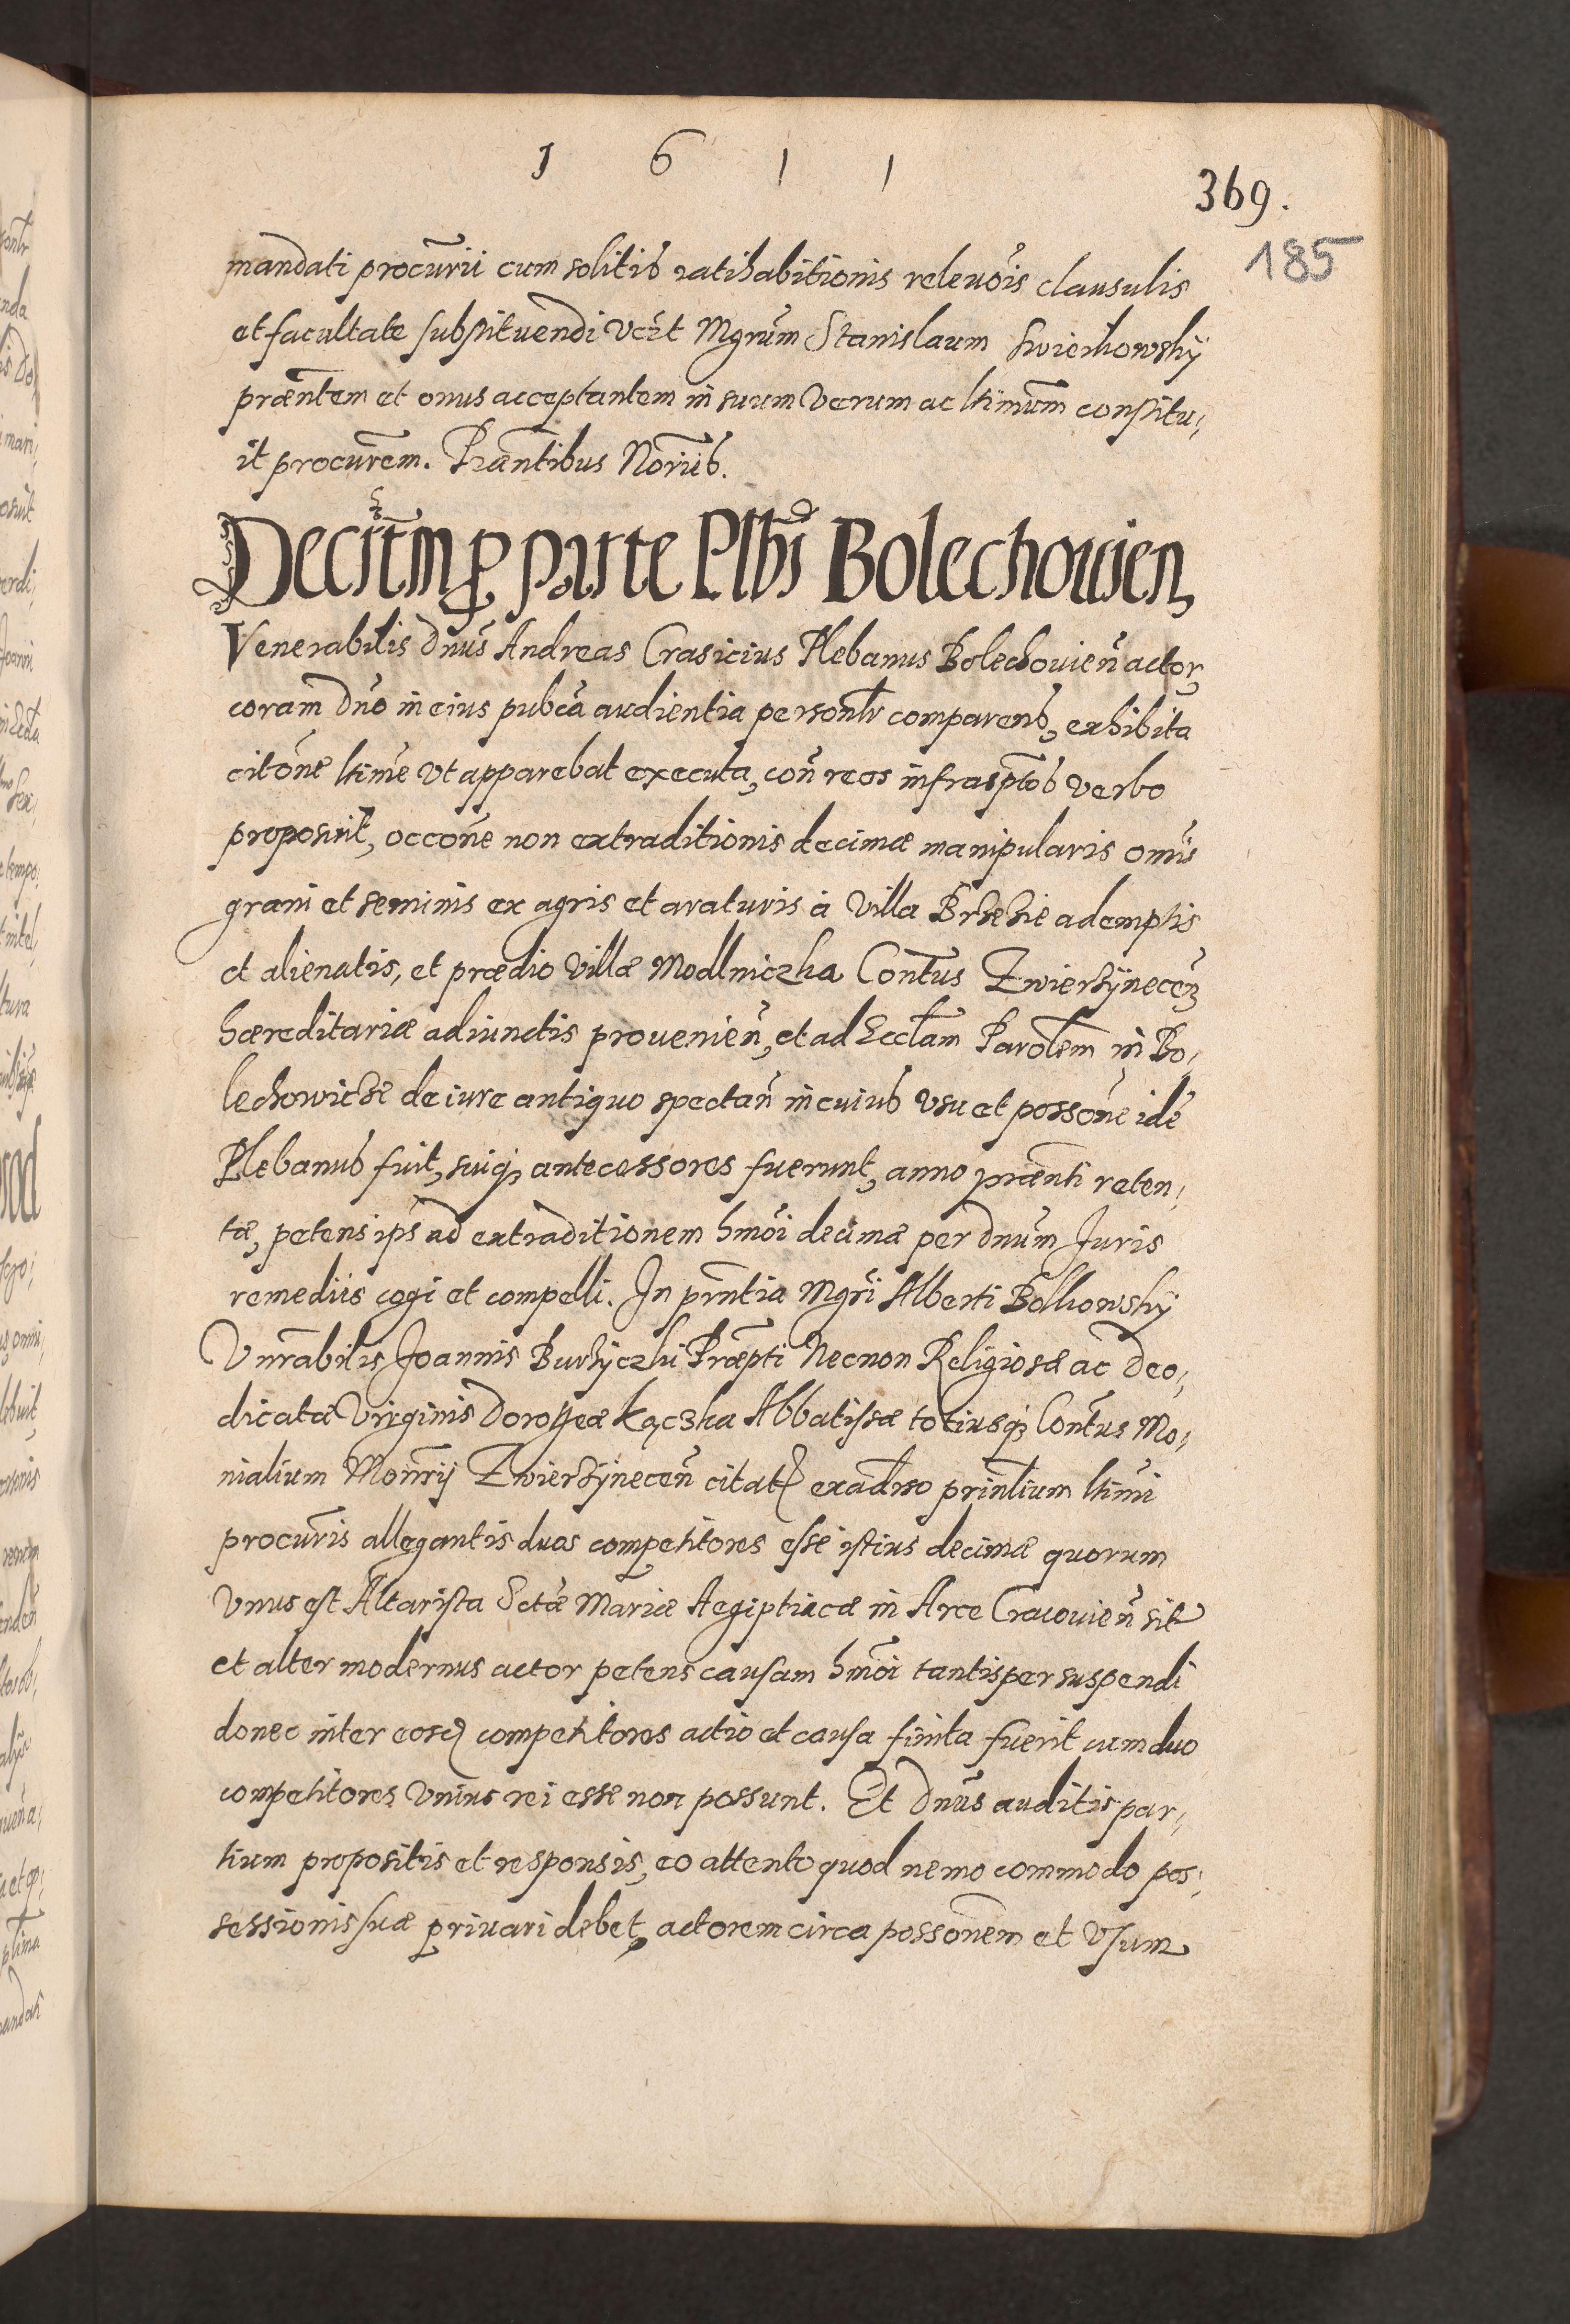 1 6 1 1
369.
185
mandati procurῑi cum solitis ratihabitionis releuōis clausulis
et facultate substituendi Vert Mgrūm Stanislaum Swierkowsky
præntem et onus acceptantem in suum Verum ac ltimūm constitu,
it procurēm. Præntibus Norīis.
Decretm p parte Plbi Bolechouien,
Venerabilis Dnūs Andreas Crasicius Plebanus Bolechouien̄ actor,
coram Dnō in eius pubcā audientia personlr comparens, exhibita
citōne ltimē Vt apparebat executa, con̄ reos infrasptos Verbo
proposuit, occōne non extraditionis decimæ manipularis omīs
grani et seminis ex agris et araturis à Villa Brzezie ademptis
et alienatis, et prædio Villæ Modlniczka Contūs Zwierzÿnecen̄
hæreditariæ adiunctis prouenien̄, et ad Ecclam Parolem in Bo,
lechowicze de iure antiquo spectan̄ in cuius Vsu et possōne idē
Plebanus fuit, suiq antecessores fuerunt, anno prænti reten,
tæ, petens ips ad extraditionem hmōi decimæ per dnūm Juris
remediis cogi et compelli. In prntia Mgri Alberti Bolkowskÿ
Vnrabilis Joannis Burzÿczki Præpti Necnon Religiosæ ac Deo,
dicatæ Virginis Dorotheæ Kączka Abbatissæ totiusq Contūs Mo,
nialium Monrīj Zwierzÿnecen̄ citat exadīso prinlium ltimi
procurīs allegantis duos competitores esse istius decimæ quorum
Vnus est Altarista Sctæ Mariæ Aegiptiacæ in Arce Cracouien̄ sit
et alter modernus actor petens causam hmōi tantisper suspendi
donec inter eosd competitores actio et causa finita fuerit cum duo
competitores Vnius rei esse non possunt. Et Dnūs auditis par,
tium propositis et responsis, eo attento quod nemo commodo pos,
sessionis suæ priuari debet, actorem circa possonēm et Vsum